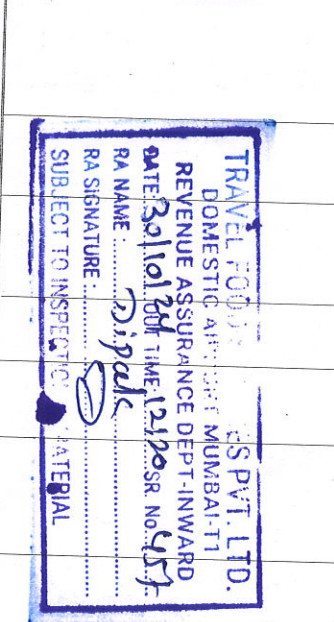 TRAVEL FOOD ES PVT. LTD.
DOMESTIC AIRPORT MUMBAI-T1
REVENUE ASSURANCE DEPT-INWARD
DATE: 30/10/24 OUT TIME 12/20 SR. No. 457
RA NAME: Dipak
RA SIGNATURE:
SUBJECT TO INSPECTIO MATERIAL